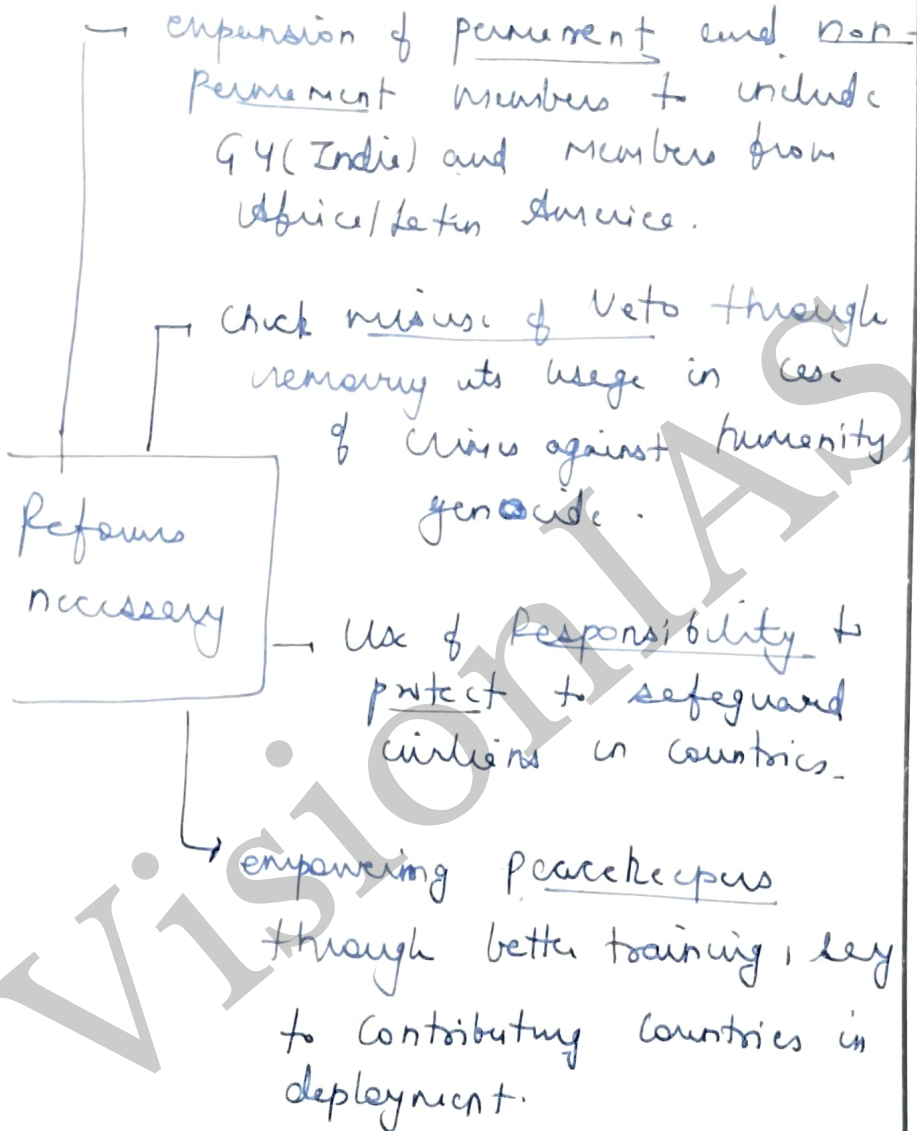 expansion of permanent and non-
Permanent members to include
G4 (India) and members from
Africa/Latin America.
Check misuse of Veto through
removing its usage in case
of crimes against humanity,
genocide.
Reforms
necessary
Use of Responsibility to
protect to safeguard
civilians in countries.
empowering peacekeepers
through better training, say
to contributing countries in
deployment.
VisionIAS